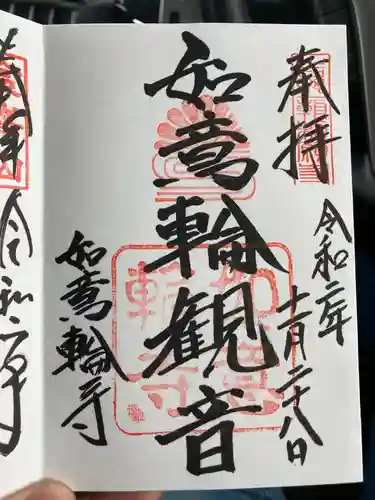 奉拝
令和二年
十一月二十八日
如意輪観音
如意輪寺
奉拝
令和二年